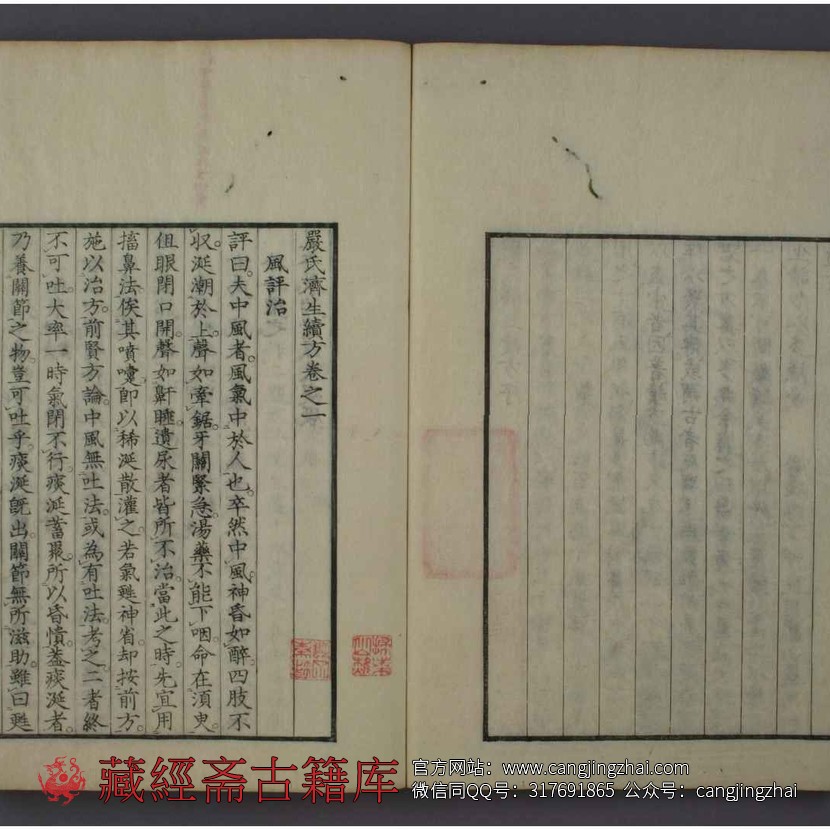 嚴氏濟生續方卷之一
風評治
評曰夫中風者風氣中於人也卒然中風神昏如醉四肢不
収涎潮於上聲如牽鋸牙關緊急湯藥不能下咽命在須臾
但眼閉口開聲如鼾睡遺尿者皆所不治當此之時先宜用
搐鼻法俟其噴嚏即以稀涎散灌之若氣甦神省却按前方
施以治方前賢方論中風無吐法或為有吐法考之二者終
不可吐大率一時氣閉不行痰涎蓄聚所以昏憒蓋痰涎者
乃養關節之物豈可吐乎痰涎旣出關節無所滋助雖曰甦
藏經斋古籍库
官方网站：www.cangjingzhai.com
微信同QQ号：317691865 公众号：cangjingzhai